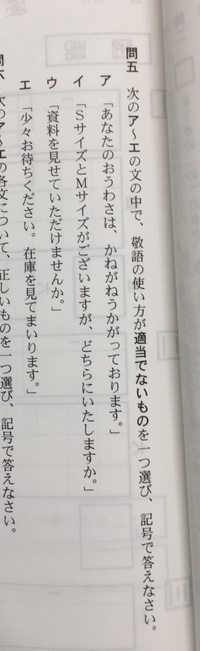 問五 次のア〜エの文の中で、敬語の使い方が適当でないものを一つ選び、記号で答えなさい。
ア 「あなたのおうわさは、かねがねうかがっております。」
イ 「SサイズとMサイズがございますが、どちらにいたしますか。」
ウ 「資料を見せていただけませんか。」
エ 「少々お待ちください。在庫を見てまいります。」
問六 次のア〜エの各文について、正しいものを一つ選び、記号で答えなさい。